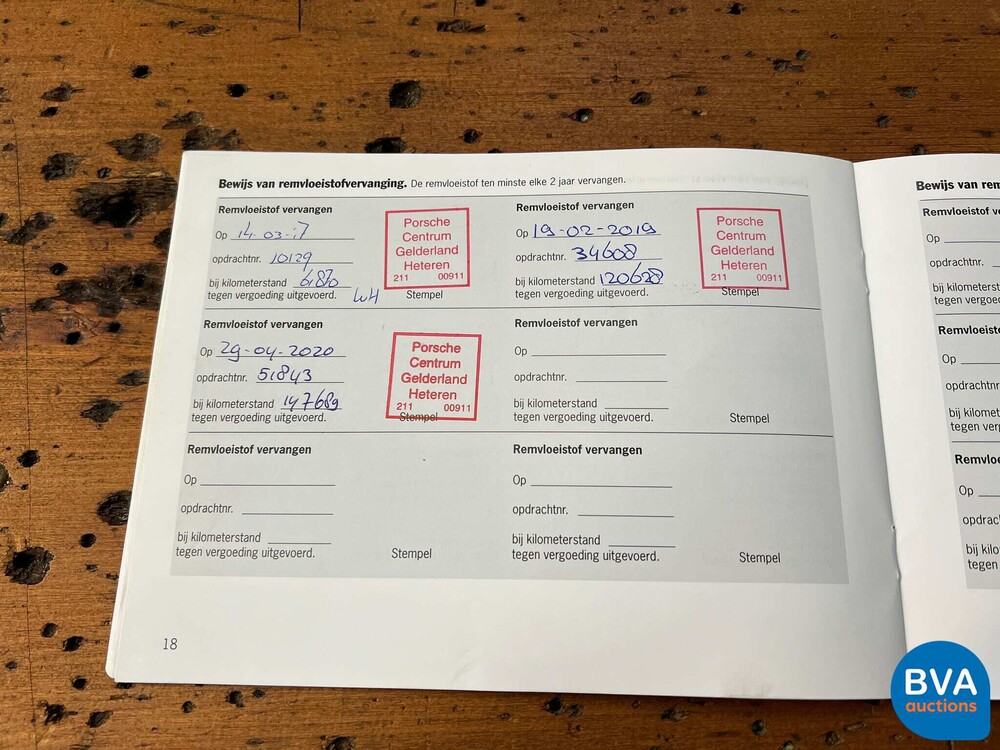 Bewijs van remvloeistofvervanging. De remvloeistof ten minste elke 2 jaar vervangen.
Remvloeistof vervangen
Op 14-03-17
opdrachtnr. 10129
bij kilometerstand
tegen vergoeding uitgevoerd.
Porsche
Centrum
Gelderland
Heteren
211 00911
Stempel
Remvloeistof vervangen
Op 19-02-2019
opdrachtnr. 34608
bij kilometerstand 120628
tegen vergoeding uitgevoerd.
Porsche
Centrum
Gelderland
Heteren
211 00911
Stempel
Remvloeistof vervangen
Op 29-04-2020
opdrachtnr. 51843
bij kilometerstand 147689
tegen vergoeding uitgevoerd.
Porsche
Centrum
Gelderland
Heteren
211 00911
Stempel
Remvloeistof vervangen
Op
opdrachtnr.
bij kilometerstand
tegen vergoeding uitgevoerd.
Stempel
Remvloeistof vervangen
Op
opdrachtnr.
bij kilometerstand
tegen vergoeding uitgevoerd.
Stempel
Remvloeistof vervangen
Op
opdrachtnr.
bij kilometerstand
tegen vergoeding uitgevoerd.
Stempel
18
Bewijs van rem
Remvloeistof v
Op
opdrachtnr.
bij kilometerst
tegen vergoe
Remvloeisto
Op
opdrachtn
bij kilomet
tegen ver
Remvloe
Op
opdrac
bij kilo
tegen
BVA
auctions